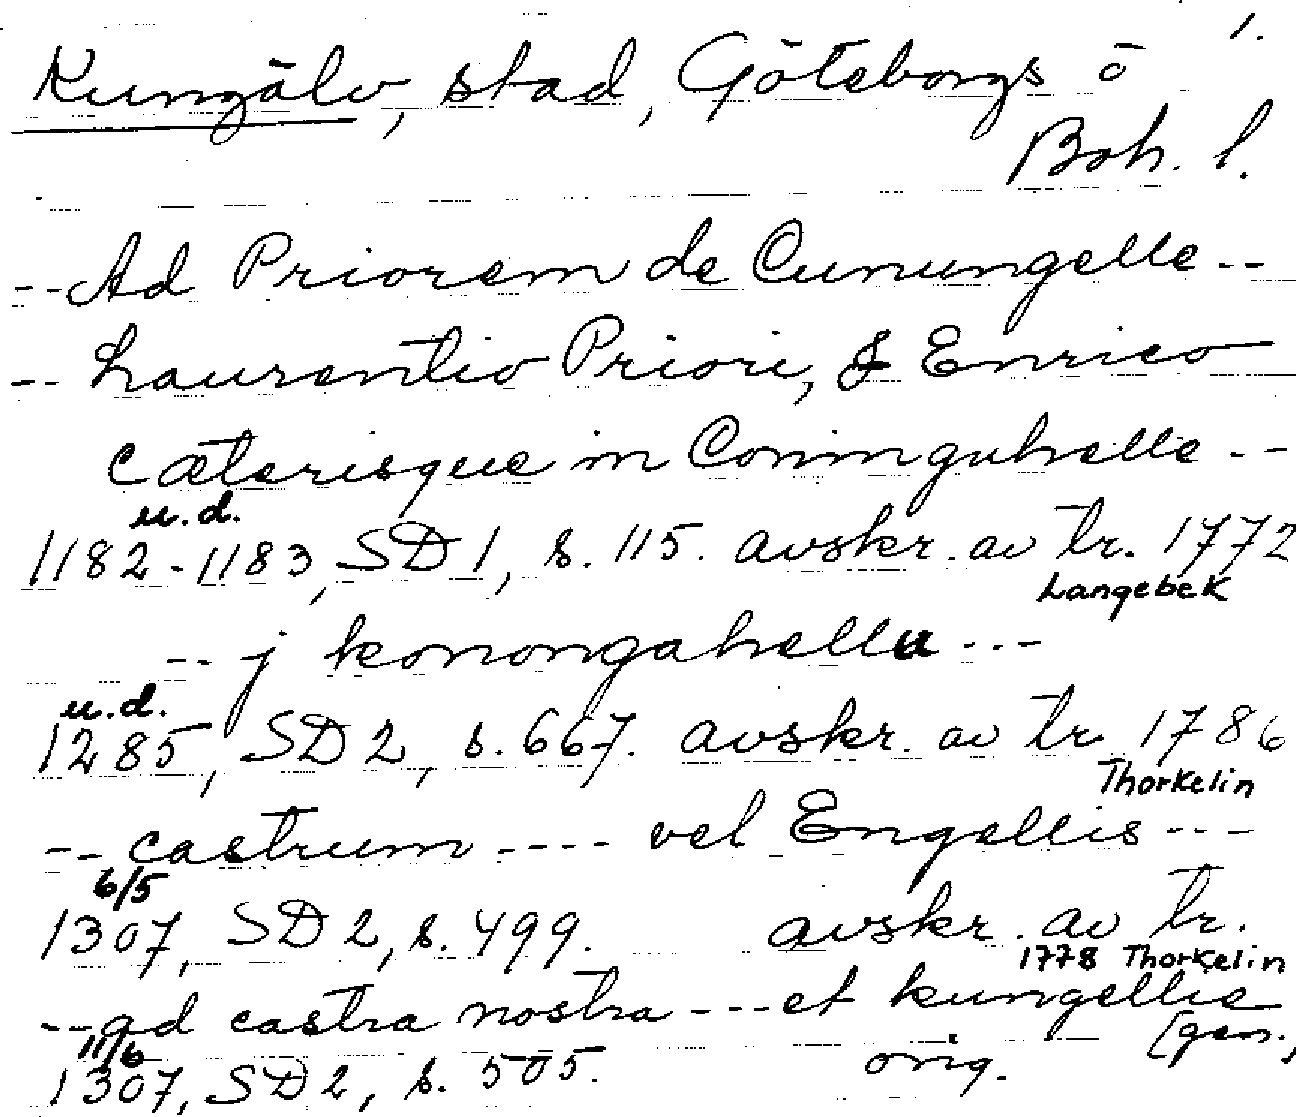 1.
Kungälv, stad, Göteborgs o
Boh. l.
-- Ad Priorem de Cunungelle --
-- Laurentio Priori, & Enrico
cæterisque in Coninguhelle --
u.d.
1182-1183, SD 1, s. 115. avskr. av tr. 1772
Langebek
-- j konongahellu ---
u.d.
1285, SD 2, s. 667. avskr. av tr. 1786
Thorkelin
-- castrum ---- vel Engellis ---
6/5
1307, SD 2, s. 499. avskr. av tr.
1778 Thorkelin
-- ad castra nostra --- et kungellie
(gen.)
11/6
1307, SD 2, s. 505. orig.